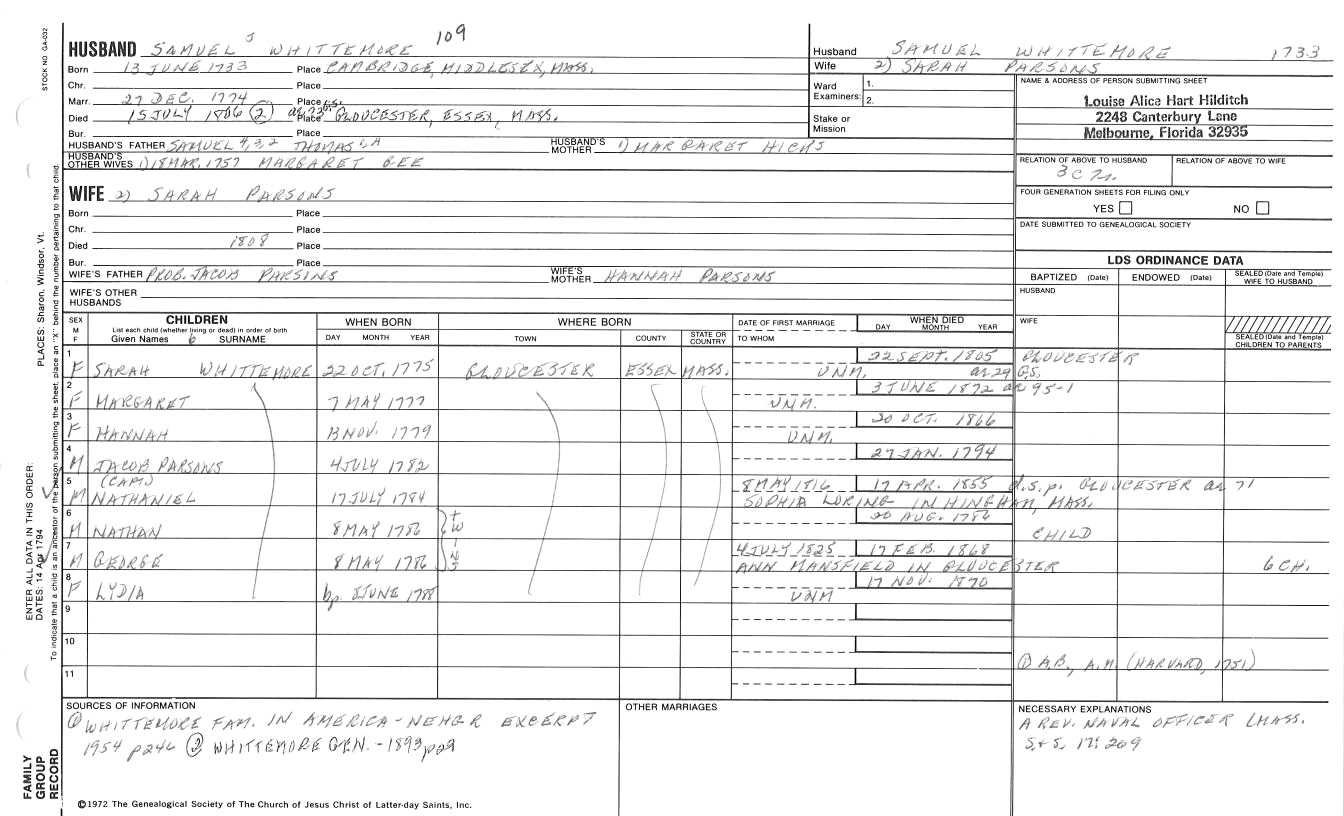 109
STOCK NO. GA-032
HUSBAND SAMUEL 5 WHITTEMORE
Born 13 JUNE 1733 Place CAMBRIDGE, MIDDLESEX, MASS.
Chr. Place
Marr. 27 DEC. 1774 Place
Died 15 JULY 1806 (2) ae 72 G.S. Place GLOUCESTER, ESSEX, MASS.
Bur. Place
HUSBAND'S FATHER SAMUEL 4,3,2 THOMAS 1,A HUSBAND'S MOTHER 1) MARGARET HICKS
HUSBAND'S OTHER WIVES 1) 18 MAR, 1757 MARGARET GEE
WIFE 2) SARAH PARSONS
Born Place
Chr. Place
Died 1808 Place
Bur. Place
WIFE'S FATHER PROB. JACOB PARSINS WIFE'S MOTHER HANNAH PARSONS
WIFE'S OTHER HUSBANDS
Husband SAMUEL WHITTEMORE 1733
Wife 2) SARAH PARSONS
Ward Examiners: 1. 2.
Stake or Mission
NAME & ADDRESS OF PERSON SUBMITTING SHEET
Louise Alice Hart Hilditch
2248 Canterbury Lane
Melbourne, Florida 32935
RELATION OF ABOVE TO HUSBAND RELATION OF ABOVE TO WIFE
3 C
FOUR GENERATION SHEETS FOR FILING ONLY
YES NO
DATE SUBMITTED TO GENEALOGICAL SOCIETY
LDS ORDINANCE DATA
BAPTIZED (Date) ENDOWED (Date) SEALED (Date and Temple) WIFE TO HUSBAND
HUSBAND
WIFE
SEALED (Date and Temple) CHILDREN TO PARENTS
SEX M F
CHILDREN
List each child (whether living or dead) in order of birth
Given Names 6 SURNAME
WHEN BORN
DAY MONTH YEAR
WHERE BORN
TOWN COUNTY STATE OR COUNTRY
DATE OF FIRST MARRIAGE
TO WHOM
WHEN DIED
DAY MONTH YEAR
1 22 SEPT. 1805 GLOUCESTER
F SARAH WHITTEMORE 22 OCT. 1775 GLOUCESTER ESSEX MASS. UNM. ae 29 G.S.
2 3 JUNE 1872 ae 95-1
F MARGARET 7 MAY 1777 UNM.
3 20 OCT. 1866
F HANNAH 13 NOV. 1779 UNM.
4 27 JAN. 1794
M JACOB PARSONS 4 JULY 1782
5 (CAPT.) 8 MAY 1816 17 APR. 1855 d.s.p. GLOUCESTER ae 71
M NATHANIEL 17 JULY 1784 SOPHIA LORING IN HINGHAM, MASS.
6 20 AUG. 1786
M NATHAN 8 MAY 1786 TWINS CHILD
7 4 JULY 1825 17 FEB. 1868
M GEORGE 8 MAY 1786 ANN MANSFIELD IN GLOUCESTER 6 CH.
8 17 NOV. 1870
F LYDIA bp. JUNE 1788 UNM
9
10
① A.B., A.M. (HARVARD, 1751)
11
SOURCES OF INFORMATION
① WHITTEMORE FAM. IN AMERICA - NEHGR EXCERPT
1954 p246 ② WHITTEMORE GEN. - 1893 p29
OTHER MARRIAGES
NECESSARY EXPLANATIONS
A REV. NAVAL OFFICER (MASS.
S.&S. 17: 209
©1972 The Genealogical Society of The Church of Jesus Christ of Latter-day Saints, Inc.
ENTER ALL DATA IN THIS ORDER:
DATES: 14 Apr 1794 PLACES: Sharon, Windsor, Vt.
To indicate that a child is an ancestor of the person submitting the sheet, place an "X" behind the number pertaining to that child.
FAMILY
GROUP
RECORD